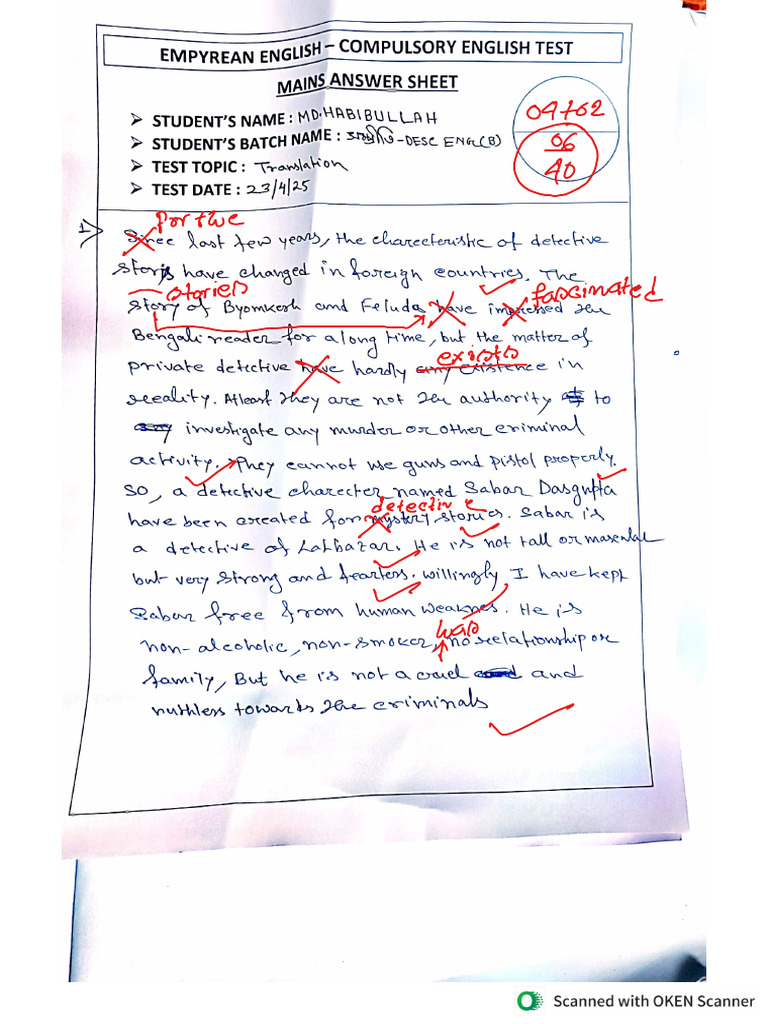 EMPYREAN ENGLISH – COMPULSORY ENGLISH TEST
MAINS ANSWER SHEET
➤ STUDENT'S NAME : MD. HABIBULLAH
➤ STUDENT'S BATCH NAME : -DESC ENG(B)
➤ TEST TOPIC : Translation
➤ TEST DATE : 23/4/25
04+02
06
40
1
For the
Since last few years, the charecteristic of detective
storys have changed in foreign countries. The
stories fascinated
story of Byomkesh and Feluda have impressed the
Bengali reader for a long time, but the matter of
exists
private detective have hardly any existence in
reeality. Atleast they are not the authority to
investigate any murder or other criminal
activity. They cannot use guns and pistol properly.
So, a detective charecter named Sabar Dasgupta
detective
have been created for mystery stories. Sabar is
a detective of Lalbazar. He is not tall or masculer
but very strong and fearless. willingly, I have kept
Sabar free from human weaknes. He is
has
non-alcoholic, non-smoker, no relationship or
family, But he is not a cruel and
ruthless towards the criminals
Scanned with OKEN Scanner